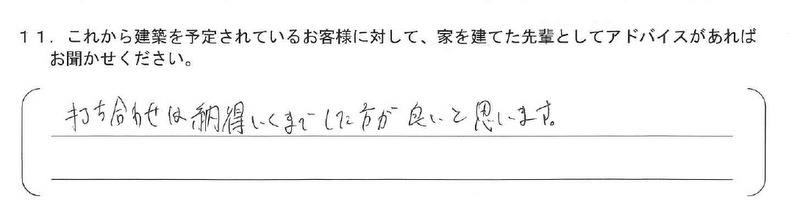 １１．これから建築を予定されているお客様に対して、家を建てた先輩としてアドバイスがあれば
お聞かせください。
打ち合わせは納得いくまでした方が良いと思います。